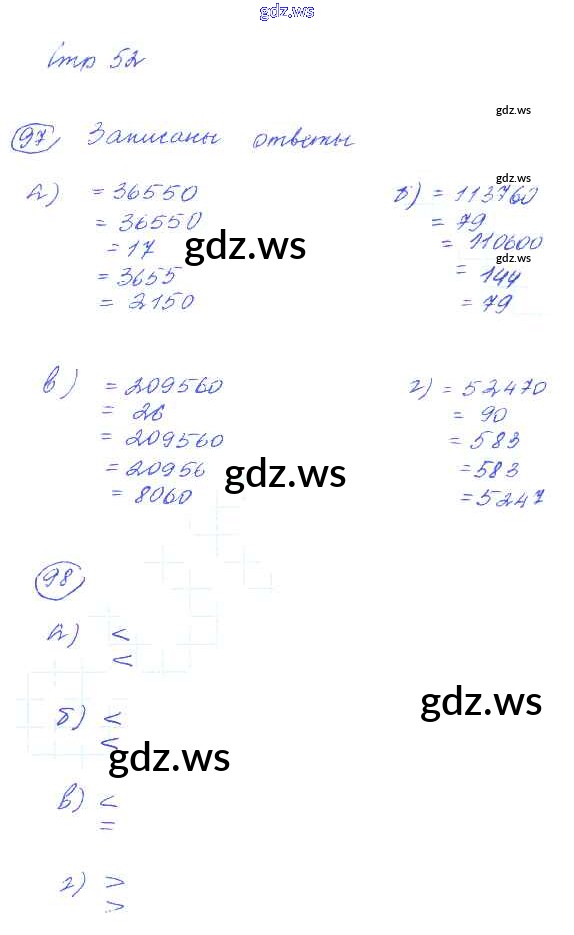 gdz.ws
Стр 52
gdz.ws
97, Записаны ответы
gdz.ws
а) = 36550
= 36550
= 17
= 3655
= 2150
gdz.ws
б) = 113760
= 79
= 110600
gdz.ws
= 144
= 79
в) = 209560
= 26
= 209560
= 20956
= 8060
gdz.ws
г) = 52470
= 90
= 583
= 583
= 5247
98
а) <
<
gdz.ws
б) <
<
gdz.ws
в) <
=
г) >
>